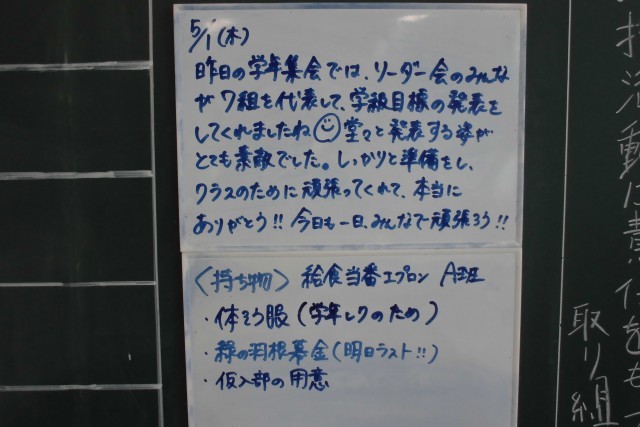 5/1(木)
昨日の学年集会では、リーダー会のみんな
が7組を代表して、学級目標の発表を
してくれましたね 堂々と発表する姿が
とても素敵でした。しっかりと準備をし、
クラスのために頑張ってくれて、本当に
ありがとう!! 今日も一日、みんなで頑張ろう!!
〈持ち物〉 給食当番エプロン A班
・体そう服(学年レクのため)
・緑の羽根募金(明日ラスト!!)
・仮入部の用意
動に責任をも
取り組